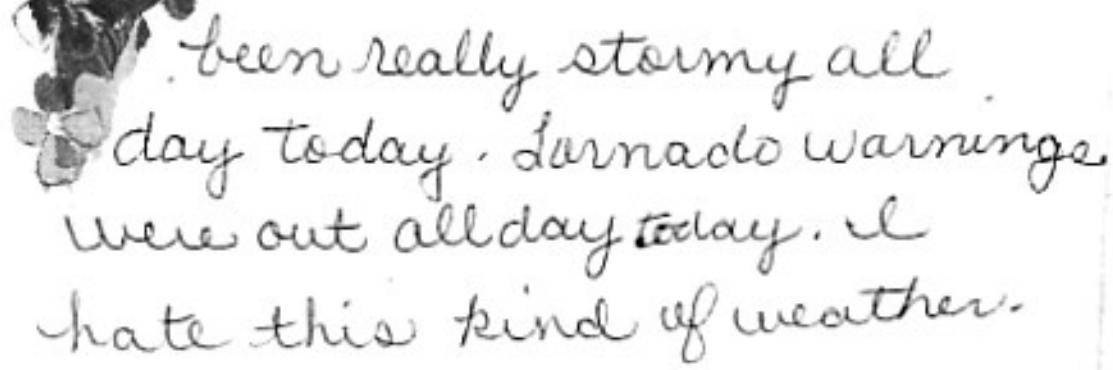 been really stormy all
day today. Tornado warnings
were out all day today. I
hate this kind of weather.